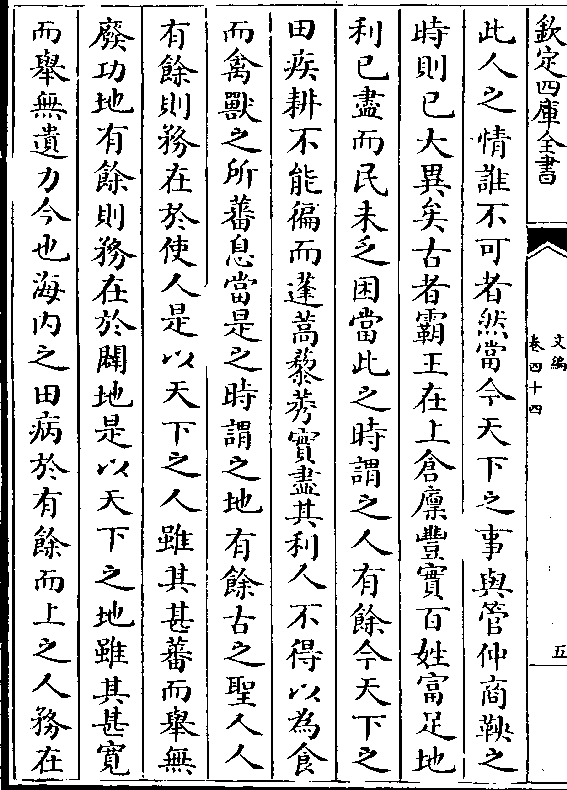 欽定四庫全書
文編
卷四十四
五
此人之情誰不可者然當今天下之事與管仲商鞅之
時則已大異矣古者霸王在上倉廩豐實百姓富足地
利已盡而民未乏困當此之時謂之人有餘今天下之
田疾耕不能徧而蓬蒿藜莠實盡其利人不得以為食
而禽獸之所蕃息當是之時謂之地有餘古之聖人人
有餘則務在於使人是以天下之人雖其甚蕃而舉無
廢功地有餘則務在於闢地是以天下之地雖其甚寛
而舉無遺力今也海内之田病於有餘而上之人務在